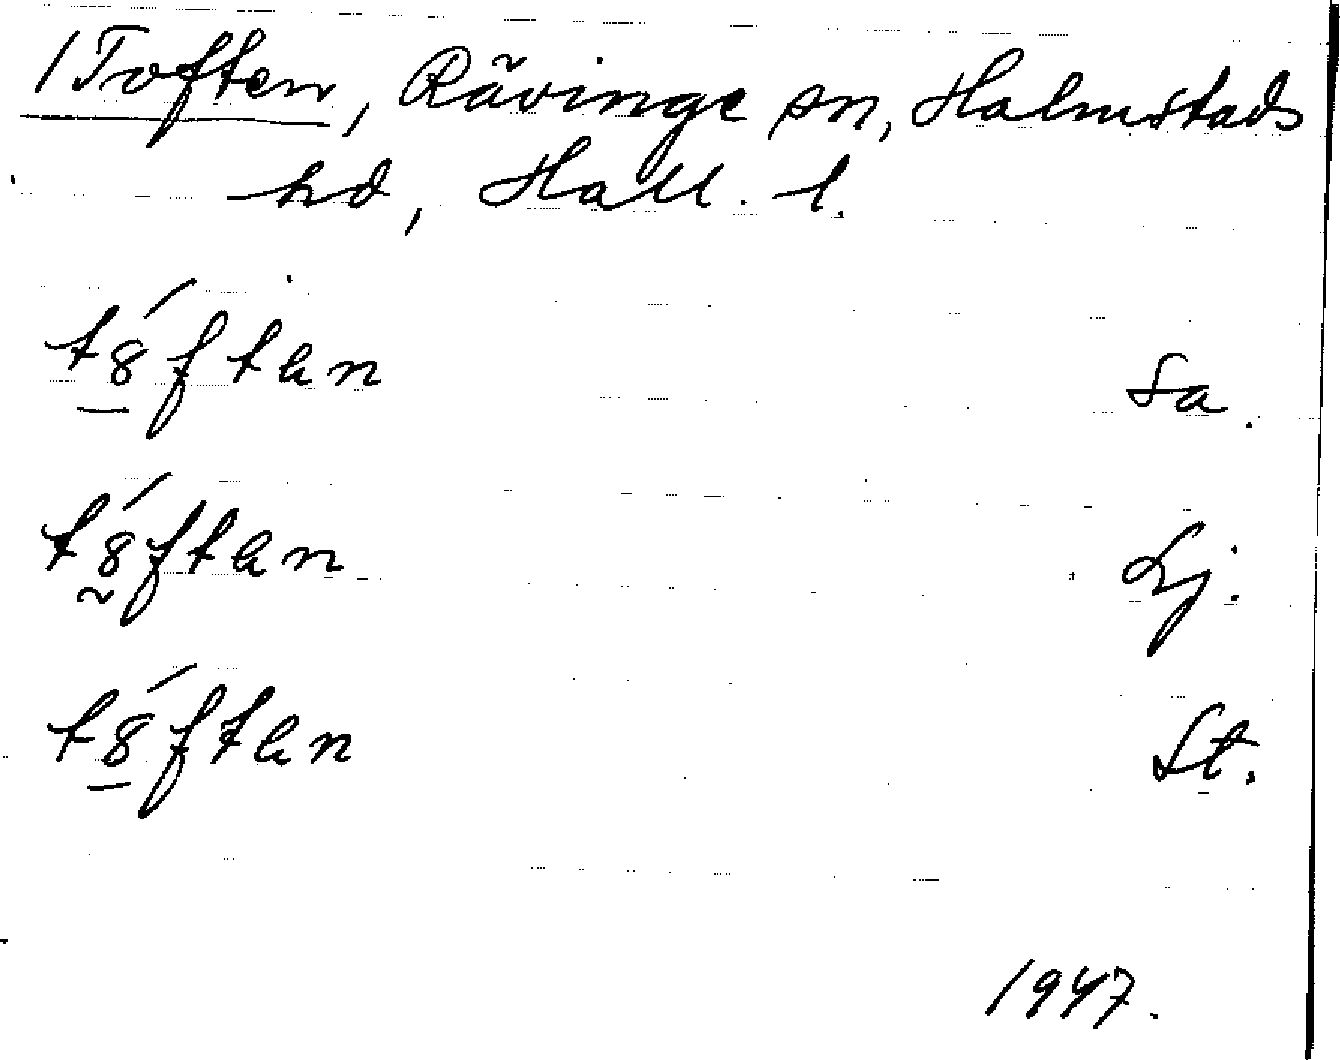 /Toften, Rävinge sn, Halmstads
hd, Hall. l.
t8́ften Sa.
t8́ften Lj.
t8́ften St.
1947.